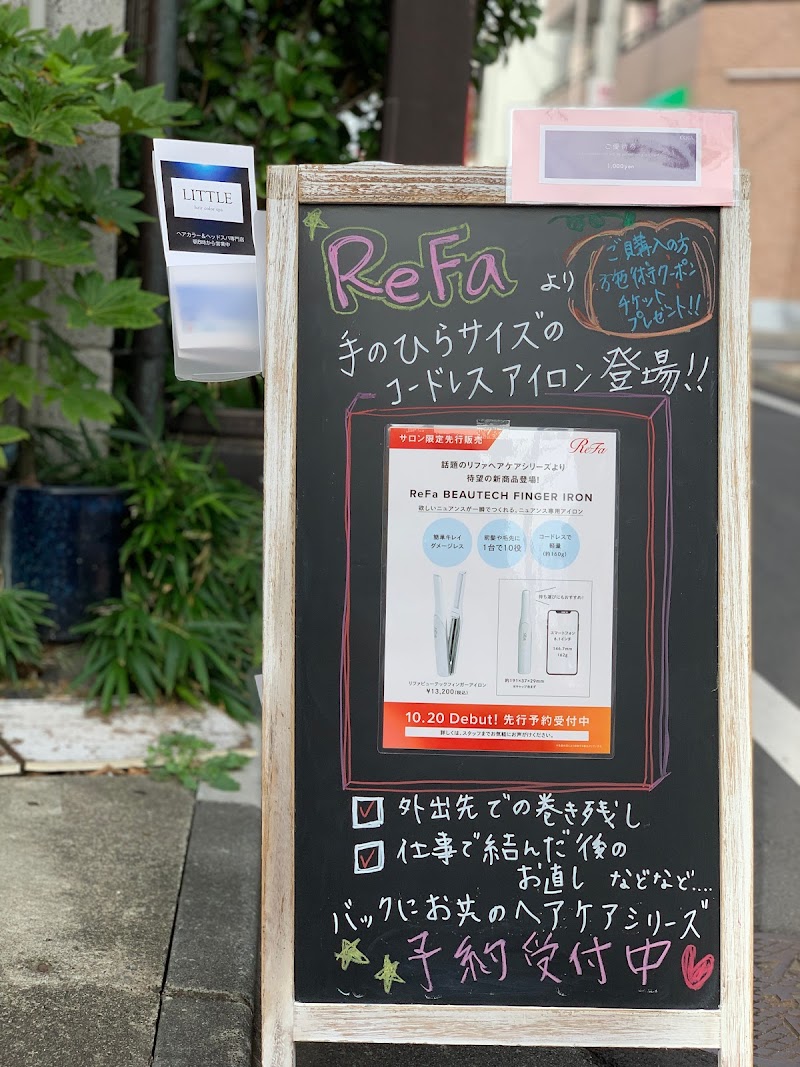 LITTLE
ヘアカラー&ヘッドスパ専門店
朝8時から営業中
1,000yen
ReFa
より
ご購入の方
施術クーポン
チケット
プレゼント!!
手のひらサイズの
コードレスアイロン登場!!
サロン限定先行販売
ReFa
話題のリファヘアケアシリーズより
待望の新商品登場!
ReFa BEAUTECH FINGER IRON
欲しいニュアンスが一瞬でつくれる、ニュアンス専用アイロン
簡単キレイ
ダメージレス
前髪や毛先に
1台で10役
コードレスで
軽量
(約160g)
持ち運びにもおすすめ!
スマートフォン
6.1インチ
146.7mm
162g
約191×37×29mm
※キャップ含まず
リファビューテックフィンガーアイロン
¥13,200(税込)
10.20 Debut! 先行予約受付中
詳しくは、スタッフまでお気軽にお声がけください。
外出先での巻き残し
仕事で結んだ後の
お直し などなど....
バックにお共のヘアケアシリーズ
予約受付中